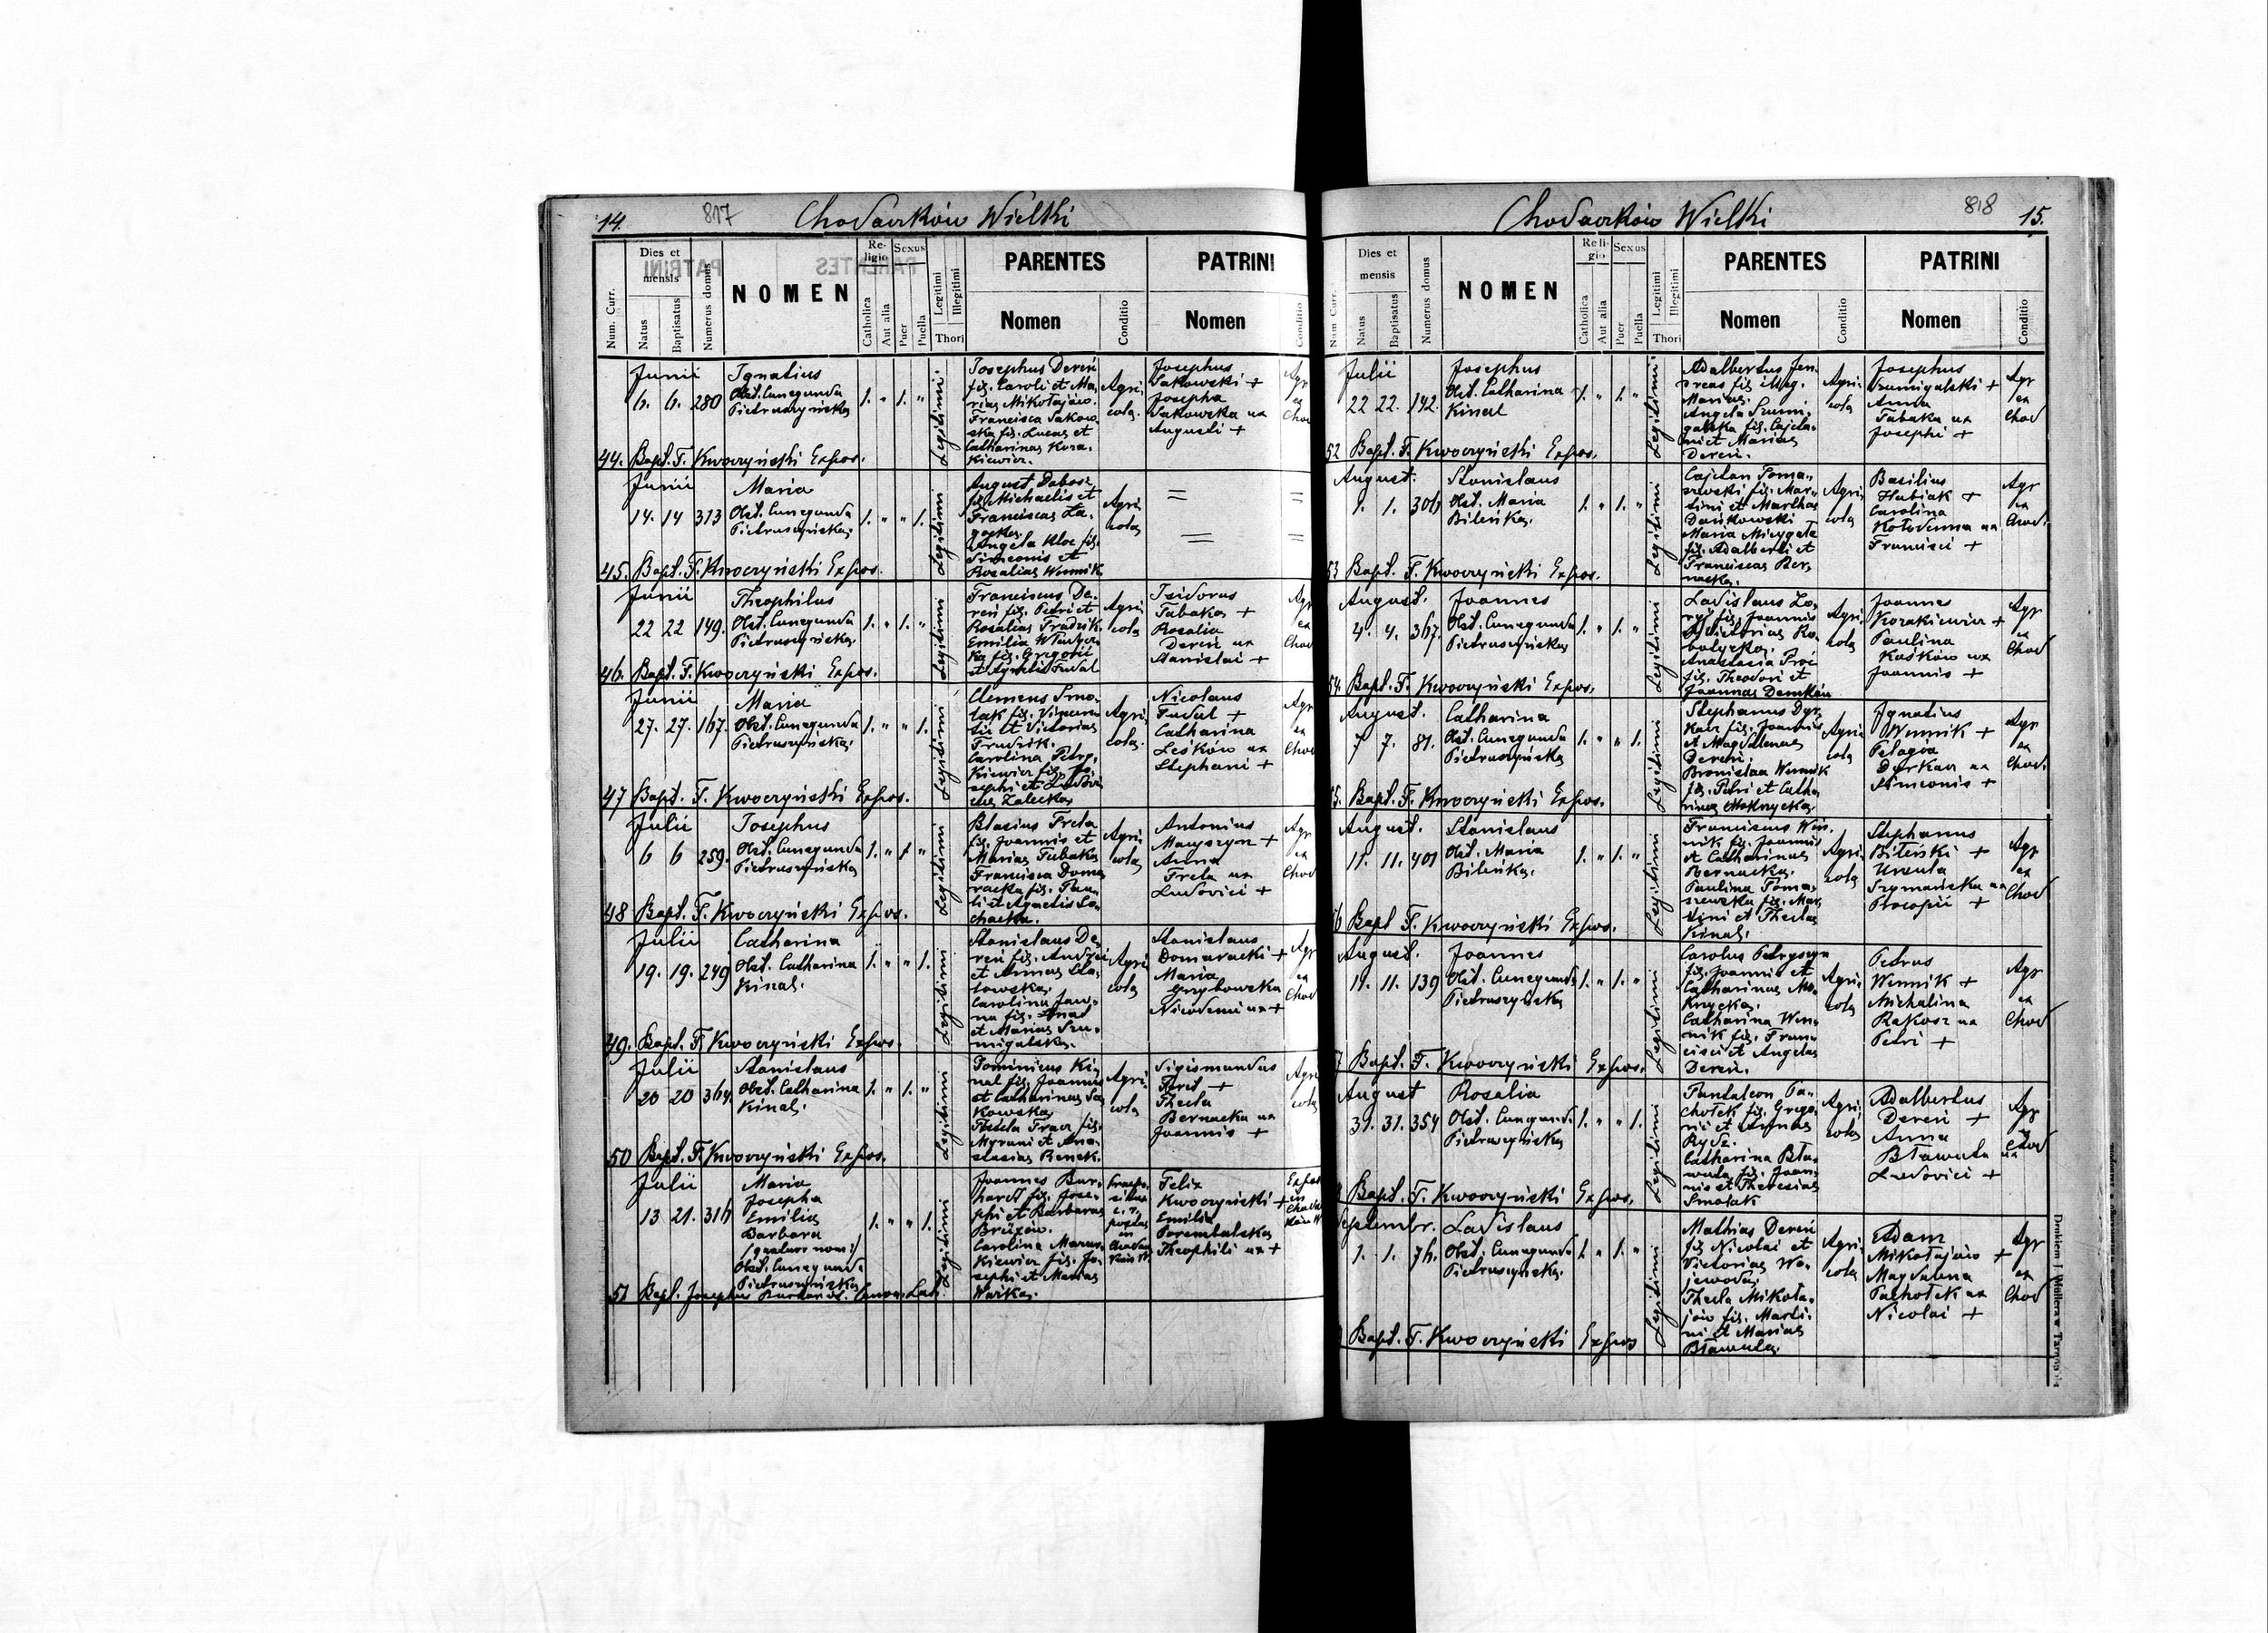 14.
817
Chodaczków Wielki
Num. Curr.
Dies et mensis
Natus
Baptisatus
Numerus domus
NOMEN
Religio
Catholica
Aut alia
Sexus
Puer
Puella
Legitimi
Illegitimi
Thori
PARENTES
Nomen
Conditio
PATRINI
Nomen
Conditio
Junii
6. 6. 280
Ignatius
Obst. Cunegunda
Pietruszyńska
1. " 1. "
Legitimi.
Josephus Dereń
fil. Caroli et Ma-
riae Mikołajów.
Francisca Sakow-
ska fil. Lucae et
Catharinae Kora-
kiewicz.
Agri
cola.
Josephus
Sakowski +
Josepha
Sakowska ux
Augusti +
44. Bapt. F. Kwoczyński Expos.
Junii
14. 14 313
Maria
Obst. Cunegunda
Pietruszyńska
1. " " 1.
Legitimi
Michaelis et
Angela Kloc fil.
Simeonis et
Rosaliae Wennik
Agri
cola
45. Bapt. F. Kwoczyński Expos.
Junii
22 22 149.
Theophilus
Obst. Cunegunda
Pietruszyńska
1. " 1. "
Legitimi
Franciscus De-
reń fil. Petri et
Rosaliae
Emilia
fil. Gregorii
Agri
cola
Isidorus
Tabaka +
Rosalia
Dereń ux
Stanislai +
46. Bapt. F. Kwoczyński Expos.
Junii
27. 27. 167.
Maria
Obst. Cunegunda
Pietruszyńska
1. " " 1.
Legitimi
Clemens Smo-
lak fil. Vincen-
tii et Victoriae
Carolina Petry-
kiewicz fil. Jo-
sephi et Ludovi-
cae Zalecka
Agri
cola.
Nicolaus
Fudal +
Catharina
Leśków ux
Stephani +
47 Bapt. F. Kwoczyński Expos.
Julii
6 6 259.
Josephus
Obst. Cunegunda
Pietruszyńska
1. " 1 "
Legitimi
Blasius Freta
fil. Joannis et
Mariae Tabaka
Francisca Doma-
racka fil. Pau-
li et Agnetis
Agri
cola
Antonius
Anna
Freta ux
Ludovici +
48 Bapt. F. Kwoczyński Expos.
Julii
19. 19. 249
Catharina
Obst. Catharina
Kinal.
1. " " 1.
Legitimi
Stanislaus De-
reń fil.
et Annae
Carolina
et Mariae Szu-
migalska.
Agri
cola
Stanislaus
Domaracki +
Maria
Grzybowska
Nicodemi ux +
49. Bapt. F. Kwoczyński Expos.
Julii
20 20 364.
Stanislaus
Obst. Catharina
Kinal.
1. " 1. "
Legitimi
Dominicus Ki-
nal fil. Joannis
et Catharinae Sa-
kowska
Thecla
Agri
cola
Sigismundus
Thecla
Bernacka ux
Joannis +
50 Bapt. F. Kwoczyński Expos.
Julii
13 21. 316
Maria
Josepha
Emilia
Barbara
Obst. Cunegunda
Pietruszyńska
1. " " 1.
Legitimi
Joannes Bur-
hardt fil. Jose-
phi et Barbarae
Carolina
kiewicz fil. Jo-
sephi et Mariae
Felix
Kwoczyński +
Emilia
Porembalska
Theophili ux +
51 Bapt. Josephus
818
15.
Chodaczków Wielki
Num Curr.
Dies et mensis
Natus
Baptisatus
Numerus domus
NOMEN
Religio
Catholica
Aut alia
Sexus
Puer
Puella
Legitimi
Illegitimi
Thori
PARENTES
Nomen
Conditio
PATRINI
Nomen
Conditio
Julii
22 22. 142.
Josephus
Obst. Catharina
Kinal
1. " 1. "
Legitimi.
Adalbertus
Mariae.
Angela Szumi-
galska fil. Cajeta-
ni et Mariae
Dereń.
Agri
cola
Josephus
Szumigalski +
Anna
Tabaka ux
Josephi +
Agr
ex
Chod
52 Bapt. F. Kwoczyński Expos.
August.
1. 1. 306
Stanislaus
Obst. Maria
Bileńka.
1. " 1. "
Legitimi
Cajetan Toma-
szewski fil. Mar-
tini et Martha
Dańkowski
Maria
fil. Adalberti et
Franciscae Ber-
nacka.
Agri
cola
Basilius
Hubiak +
Carolina
Kołodenna ux
Francisci +
Agr
ex
Chod.
53 Bapt. F. Kwoczyński Expos.
August.
4. 4. 367.
Joannes
Obst. Cunegunda
Pietruszyńska
1. " 1. "
Legitimi
Ladislaus
fil. Joannis
et Victoriae
Anastasia
fil. Theodori et
Joannae Demków
Agri
cola
Joannes
Korakiewicz +
Paulina
Kośków ux
Joannis +
Agr
ex
Chod
54. Bapt. F. Kwoczyński Expos.
August.
7 7. 81.
Catharina
Obst. Cunegunda
Pietruszyńska
1. " " 1.
Legitimi
Stephanus Dyr-
kacz fil. Joannis
et Magdalenae
Dereń.
Bronislaa Wennik
fil. Petri et Catha-
rinae Mokrycka
Agri
cola
Ignatius
Wennik +
Pelagia
Dyrkacz ux
Simeonis +
Agr
ex
Chod.
5. Bapt. F. Kwoczyński Expos.
August.
11. 11. 401
Stanislaus
Obst. Maria
Bileńka.
1. " 1. "
Legitimi
Franciscus Wen-
nik fil. Joannis
et Catharinae
Bernacka.
Paulina Toma-
szewska fil. Mar-
tini et Theclae
Kinal.
Agri
cola
Stephanus
Bileński +
Ursula
Szymańska ux
Procopii +
Agr
ex
Chod
6 Bapt F. Kwoczyński Expos.
August.
11. 11. 139
Joannes
Obst. Cunegunda
Pietruszyńska
1. " 1. "
Legitimi
Carolus Petryszyn
fil. Joannis et
Catharinae Mo-
krycka.
Catharina Wen-
nik fil. Fran-
cisci et Angelae
Dereń.
Agri
cola
Petrus
Wennik +
Michalina
Rakosz ux
Petri +
Agr
ex
Chod
7 Bapt. F. Kwoczyński Expos.
August
31. 31. 354
Rosalia
Obst. Cunegunda
Pietruszyńska
1. " " 1.
Legitimi
Pantaleon Pa-
chołek fil. Grego-
rii et Agnes
Rydz.
Catharina Bła-
wuta fil. Joan-
nis et Theresiae
Smolak
Agri
cola
Adalbertus
Dereń +
Anna
Bławuta ux
Ludovici +
Agr
ex
Chod
8 Bapt. F. Kwoczyński Expos.
Septembr.
1. 1. 76.
Ladislaus
Obst. Cunegunda
Pietruszyńska.
1. " 1. "
Legitimi
Mathias Dereń
fil. Nicolai et
Victoriae Wo-
jewoda.
Thecla Mikoła-
jów fil. Marti-
ni et Mariae
Bławuta
Agri
cola
Adam
Mikołajów +
Magdalena
Pachołek ux
Nicolai +
Agr
ex
Chod
Bapt. F. Kwoczyński Expos